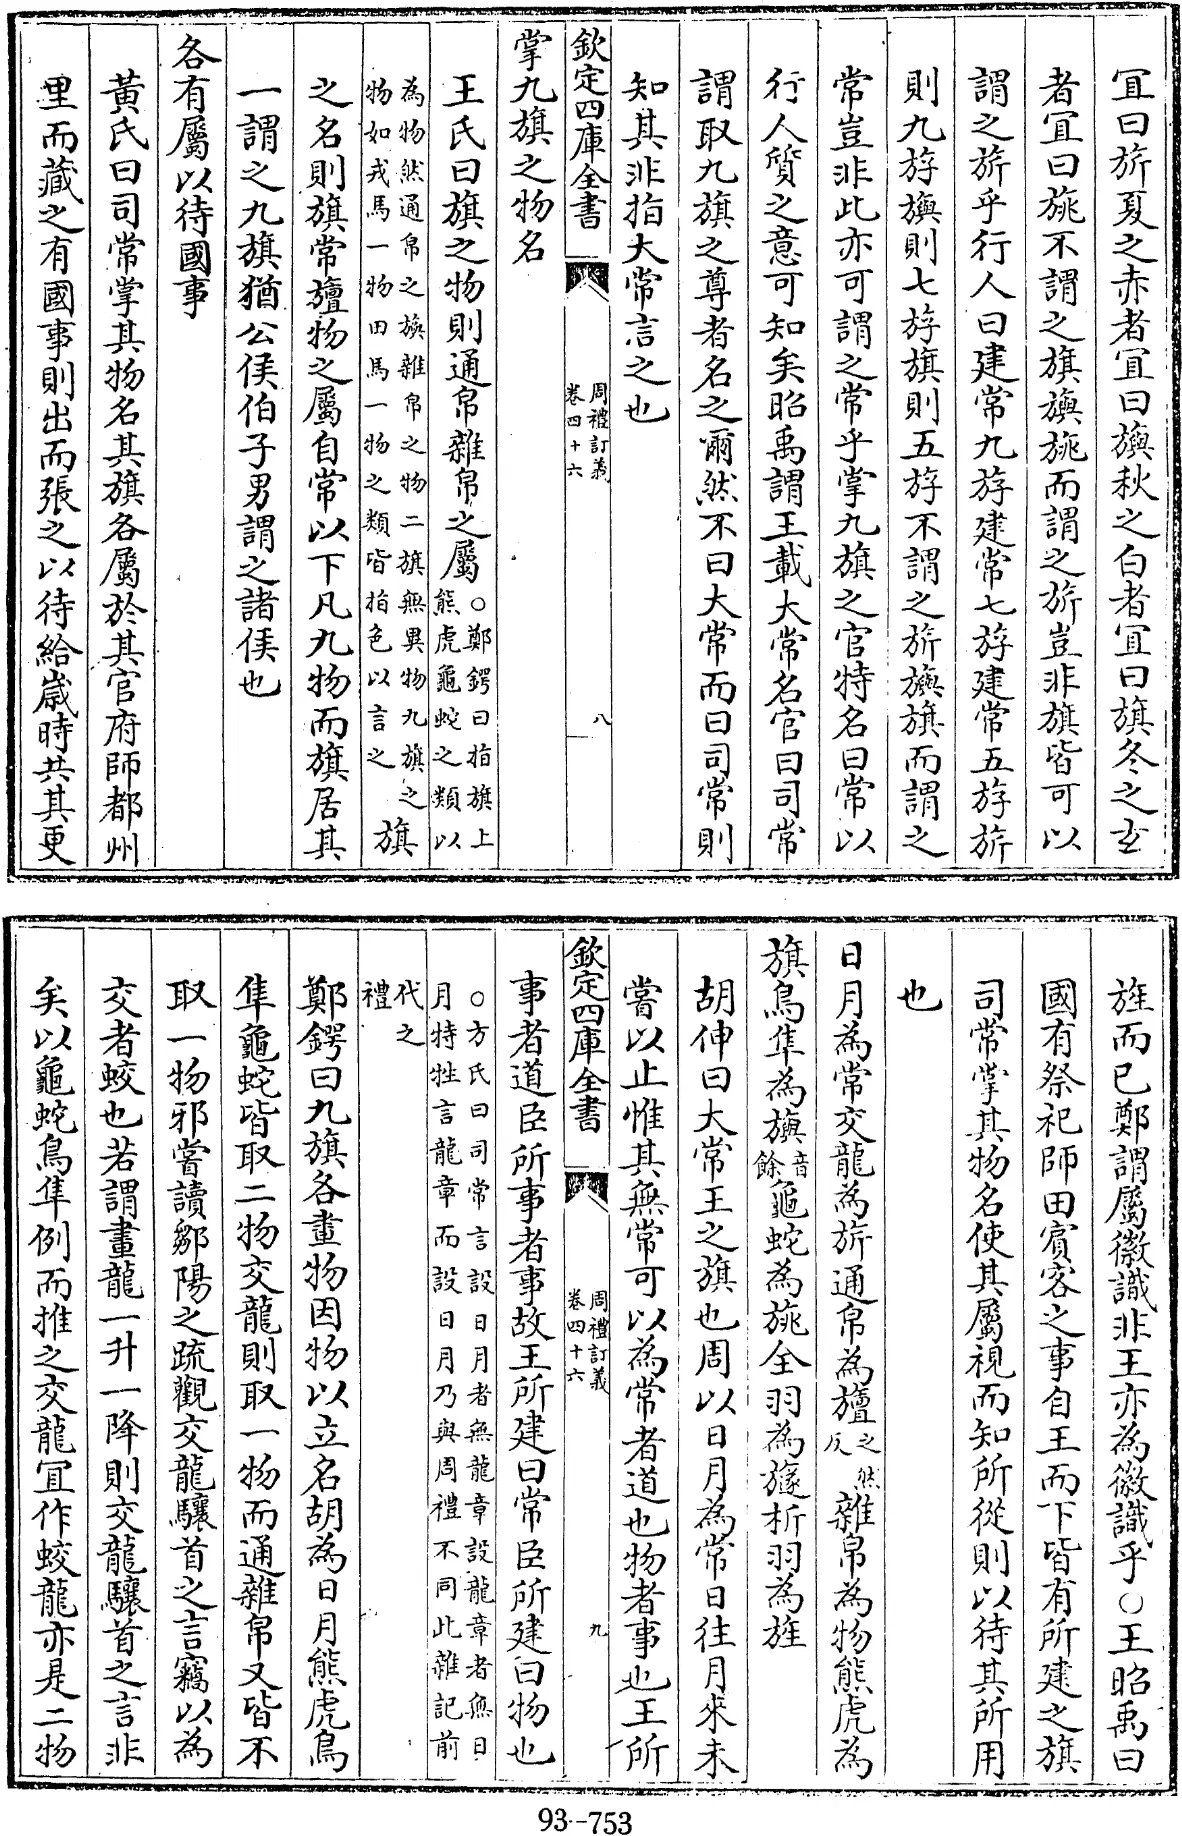 宜曰旂夏之赤者宜曰旟秋之白者宜曰旗冬之𤣥
者宜曰旐不謂之旗旟旐而謂之旂豈非旗皆可以
謂之旂乎行人曰建常九斿建常七斿建常五斿旂
則九斿旟則七斿旗則五斿不謂之旂旟旗而謂之
常豈非此亦可謂之常乎掌九旗之官特名曰常以
行人質之意可知矣昭禹謂王載大常名官曰司常
謂取九旗之尊者名之爾然不曰大常而曰司常則
知其非指大常言之也
欽定四庫全書
周禮訂義
卷四十六
八
掌九旗之物名
王氏曰旗之物則通帛雜帛之屬○鄭鍔曰指旗上
熊虎龜蛇之類以
為物然通帛之旜雜帛之物二旗無異物九旗之
物如戎馬一物田馬一物之類皆指色以言之
旗
之名則旗常旜物之屬自常以下凡九物而旗居其
一謂之九旗猶公侯伯子男謂之諸侯也
各有屬以待國事
黃氏曰司常掌其物名其旗各屬於其官府師都州
里而藏之有國事則出而張之以待給歲時共其更
旌而已鄭謂屬徽識非王亦為徽識乎○王昭禹曰
國有祭祀師田賓客之事自王而下皆有所建之旗
司常掌其物名使其屬視而知所從則以待其所用
也
日月為常交龍為旂通帛為旜之然
反
雜帛為物熊虎為
旗鳥隼為旟音
餘
龜蛇為旐全羽為旞析羽為旌
胡伸曰大常王之旗也周以日月為常日往月來未
嘗以止惟其無常可以為常者道也物者事也王所
欽定四庫全書
周禮訂義
卷四十六
九
事者道臣所事者事故王所建曰常臣所建曰物也
○方氏曰司常言設日月者無龍章設龍章者無日
月特牲言龍章而設日月乃與周禮不同此雜記前
代之
禮
鄭鍔曰九旗各畫物因物以立名胡為日月熊虎鳥
隼龜蛇皆取二物交龍則取一物而通雜帛又皆不
取一物邪嘗讀鄒陽之疏觀交龍驤首之言竊以為
交者蛟也若謂畫龍一升一降則交龍驤首之言非
矣以龜蛇鳥隼例而推之交龍宜作蛟龍亦是二物
93-753